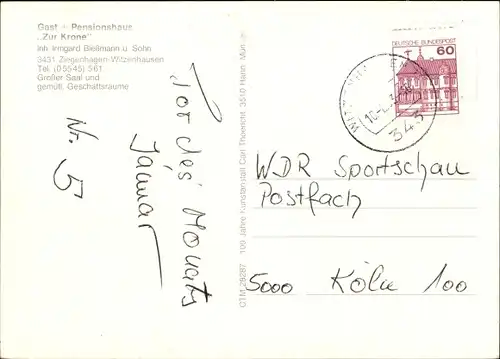 Gast + Pensionshaus
„Zur Krone"
Inh. Irmgard Bleßmann u. Sohn
3431 Ziegenhagen-Witzenhausen
Tel. (0 55 45) 5 61
Großer Saal und
gemütl. Geschäftsräume
Tor des Monats
Januar
Nr. 5
CTM 28287 100 Jahre Kunstanstalt Carl Thoericht 3510 Hann. Mün
DEUTSCHE BUNDESPOST
60
343
WDR Sportschau
Postfach
5000 Köln 100